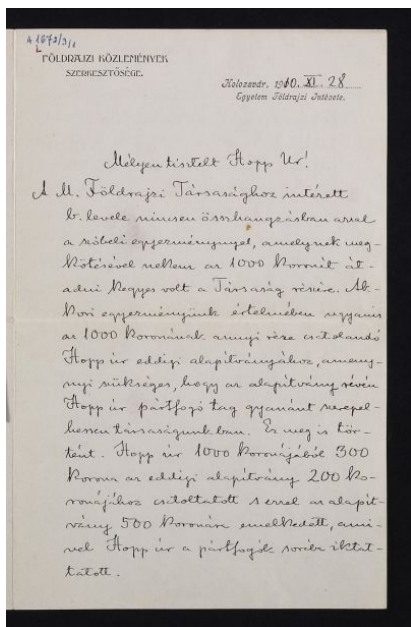 A 1673/3/1
FÖLDRAJZI KÖZLEMÉNYEK
SZERKESZTŐSÉGE.
Kolozsvár, 1910. XI. 28
Egyetem Földrajzi Intézete.
Mélyen tisztelt Hopp Ur!
A M. Földrajzi Társasághoz intézett
b. levele nincsen összhangzásban azzal
a szóbeli egyezménynyel, amelynek meg-
kötésével nekem az 1000 koronát át-
adni kegyes volt a Társaság részére. Ak-
kori egyezményünk értelmében ugyanis
az 1000 koronának annyi része csatolandó
Hopp úr eddigi alapítványához, ameny-
nyi szükséges, hogy az alapítvány révén
Hopp úr pártfogó tag gyanánt szerepel-
hessen társaságunkban. Ez meg is tör-
tént. Hopp úr 1000 koronájából 300
korona az eddigi alapítvány 200 ko-
ronájához csatoltatott s ezzel az alapít-
vány 500 koronára emelkedett, ami-
vel Hopp úr a pártfogók sorába iktat-
tatott.